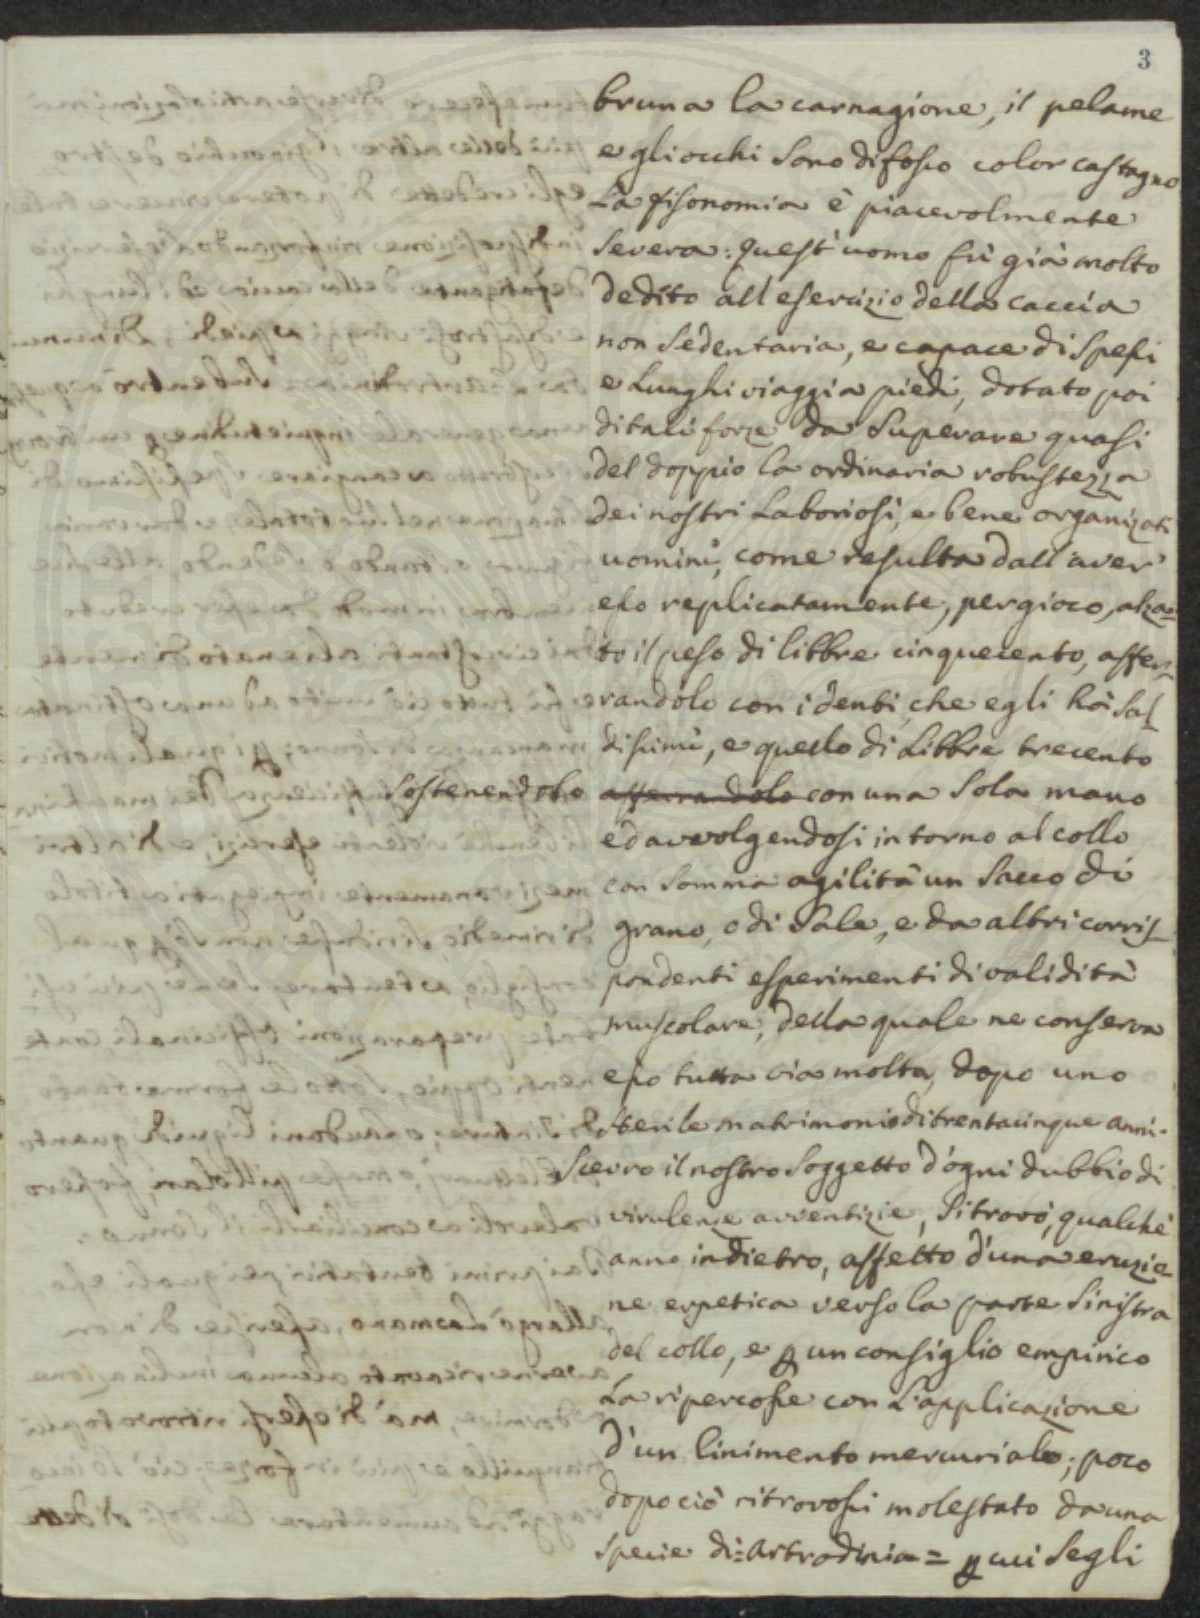 3
bruna la carnagione, il pelame
e gli occhi sono di fosco color castagno
La fisonomia è piacevolmente
severa: quest'uomo fù già molto
dedito all'esercizio della caccia
non sedentaria, e capace di spessi
e lunghi viaggi a piedi, dotato poi
di tali forze da superare quasi
del doppio la ordinaria robustezza
dei nostri laboriosi, e bene organizati
uomini, come resulta dall'aver
esso replicatamente, per gioco, alza=
to il peso di libbre cinquecento, affer=
randolo con i denti, che egli hà sal=
dissimi, e quello di Libbre trecento
sostenendolo afferrandolo con una sola mano
ed avvolgendosi intorno al collo
con somma agilità un sacco di
grano, o di sale, e da altri corris=
pondenti esperimenti di validità
muscolare, della quale ne conserva
esso tutta via molta, dopo uno
sterile matrimonio di trentacinque anni.
Scevro il nostro soggetto d'ogni dubbio di
virulenze avventizie, si trovò, qualche
anno indietro, affetto d'una eruzio=
ne erpetica verso la parte sinistra
del collo, e p un consiglio empirico
La ripercosse con l'applicazione
d'un linimento mercuriale; poco
dopo ciò ritrovossi molestato da una
specie di=Artrodinia= p cui segli